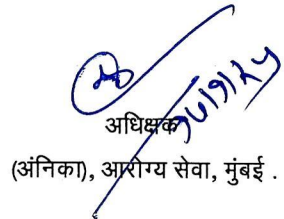 अधिक्षक
(अंनिका), आरोग्य सेवा, मुंबई .